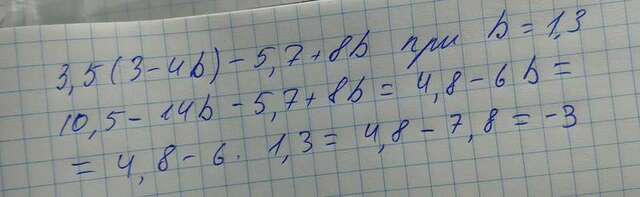 3,5(3-4b)-5,7+8b при b=1,3
10,5-14b-5,7+8b=4,8-6b=
=4,8-6·1,3=4,8-7,8=-3